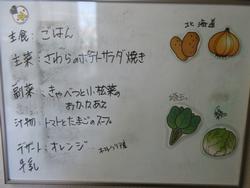 主食：ごはん
北海道
主菜：さわらのポテトサラダ焼き
副菜：きゃべつと小松菜の
おかかあえ
埼玉
汁物：トマトとたまごのスープ
デザート：オレンジ
牛乳